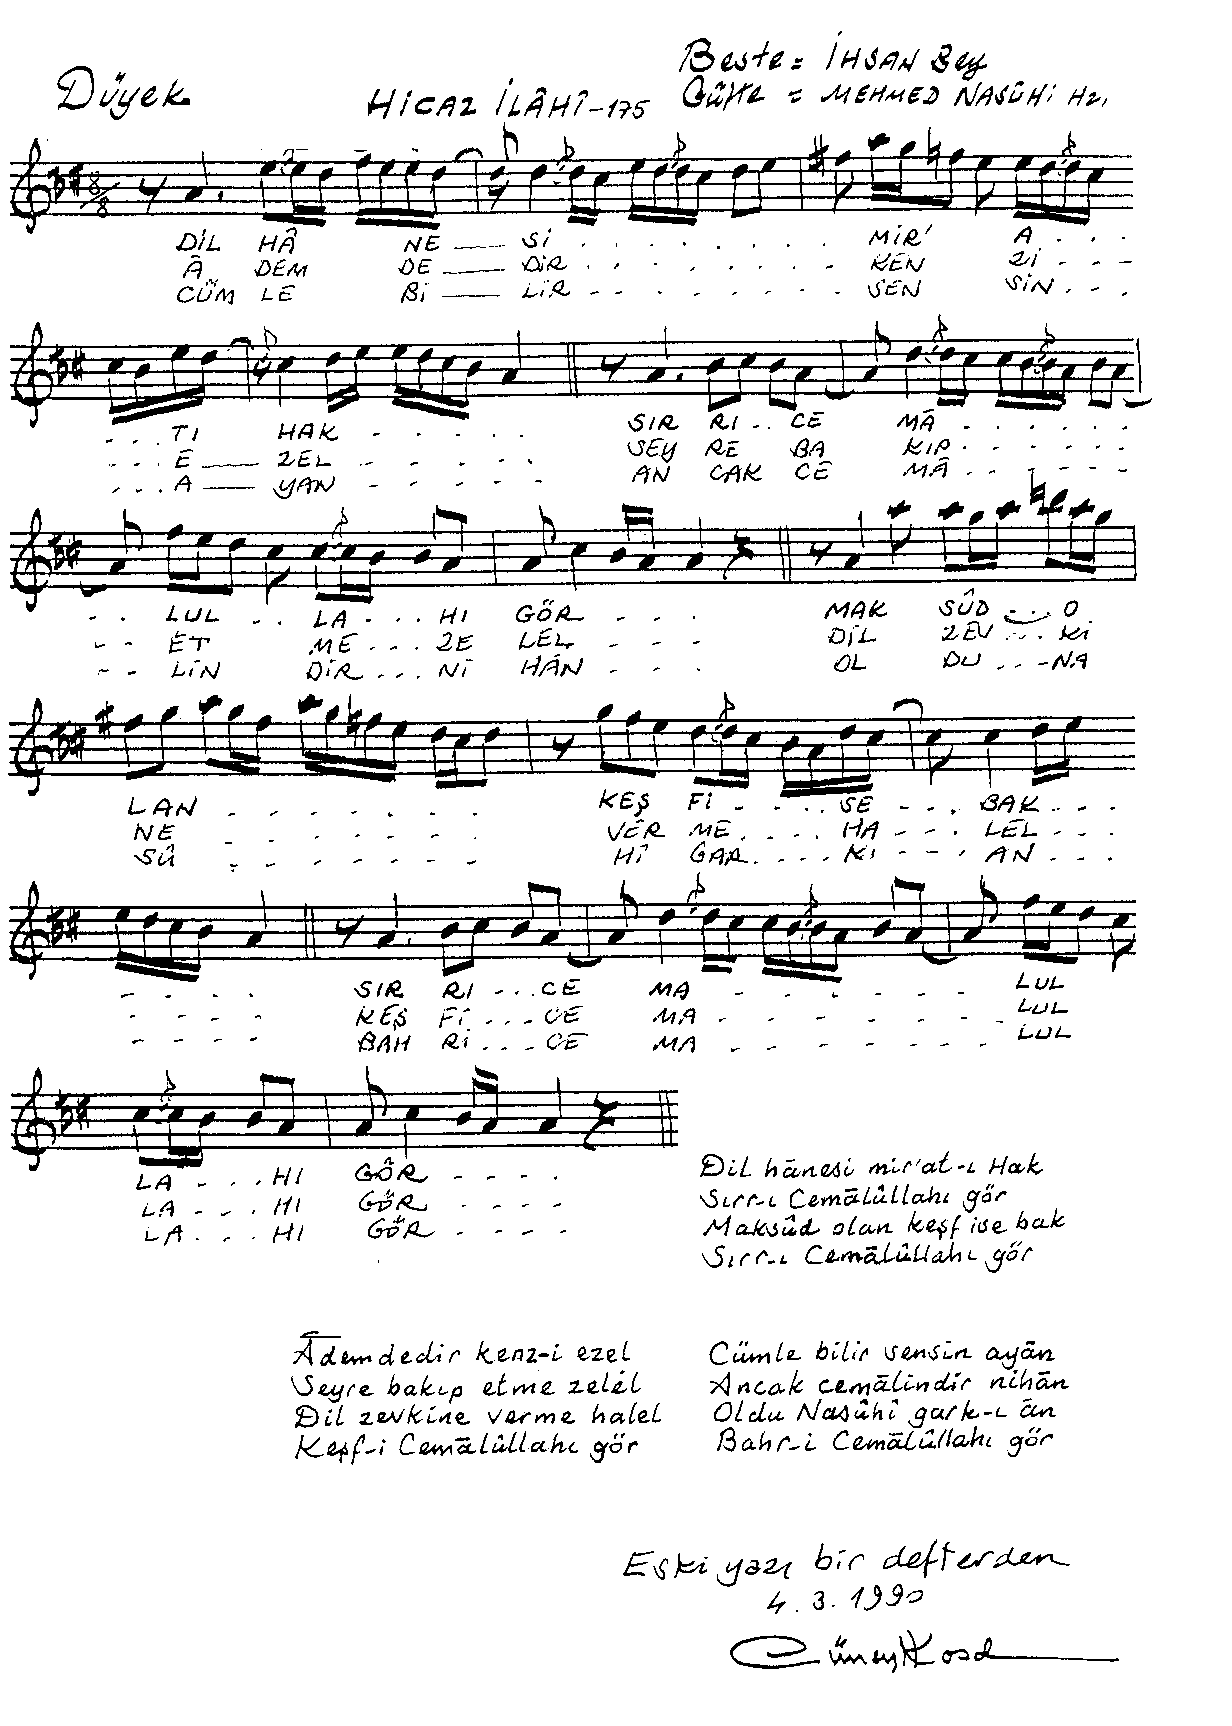 Düyek
HİCAZ İLÂHÎ-175
Beste = İHSAN Bey
Güfte = MEHMED NASÛHİ Hz.
8/8
DİL HÂ NE Sİ . . . . . . . MİR' A . . .
Â DEM DE DİR . . . . . . . KEN Zİ - - -
CÜM LE Bİ LİR - - - - - - - SEN SİN . - -
- . . . TI HAK - - - - - SIR RI . . CE MÂ . . . . . .
- . . . E ZEL - - - - - SEY RE BA KIP . . . . . .
. . . . A YAN - - - - - AN CAK CE MÂ . . - - - -
. . LUL . . LA . . . HI GÖR . . . . MAK SÛD . . O
- - ET ME . . . ZE LEL - - - DİL ZEV . . . Kİ
- - LİN DİR . . . Nİ HÂN - - - OL DU . . . -NA
LAN . . . . . . . KEŞ Fİ - . . . SE - . . BAK . . .
NE - - - - - - VER ME . . . . HA - - . LEL - - .
SÛ - - - - - - - HÎ GAR . . . . KI - - . AN - - .
- - - . SIR RI - . . CE MA - - - - - - LUL
- - - - KEŞ Fİ . . . CE MA . - - - - - - LUL
- - - - BAH Rİ . . . CE MA - - - - - - - LUL
LA - . . HI GÖR - - - .
LA - - . HI GÖR - - - -
LA . . . HI GÖR . - - -
Dil hânesi mir'at-ı Hak
Sırr-ı Cemâlûllahı gör
Maksûd olan keşf ise bak
Sırr-ı Cemâlûllahı gör
Âdemdedir kenz-i ezel
Seyre bakıp etme zelél
Dil zevkine verme halel
Keşf-i Cemâlûllahı gör
Cümle bilir sensin ayân
Ancak cemâlindir nihân
Oldu Nasûhî gark-ı ân
Bahr-i Cemâlûllahı gör
Eski yazı bir defterden
4.3.1990